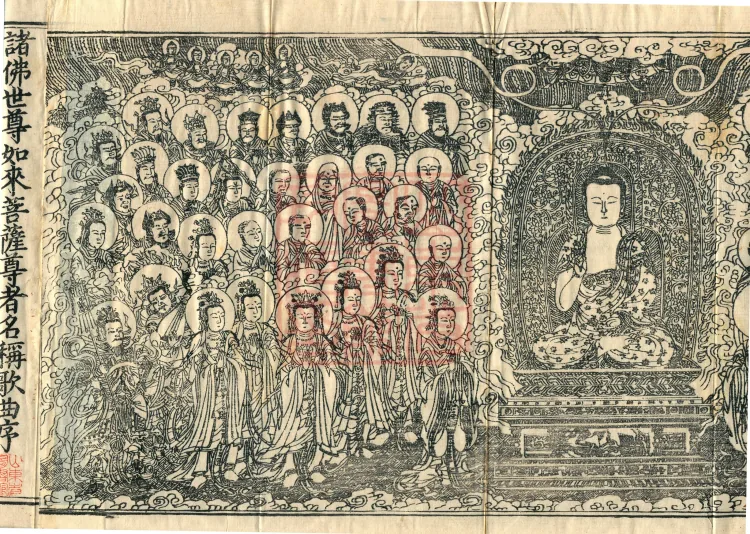 諸佛世尊如來菩薩尊者名稱歌曲序